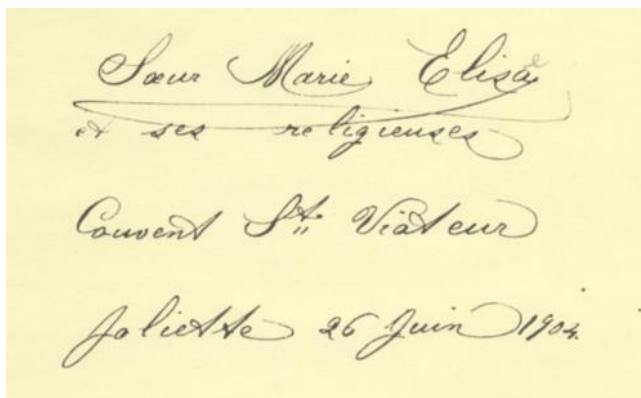 Sœur Marie Elisa
et ses religieuses
Couvent St. Viateur
Joliette 26 Juin 1904.